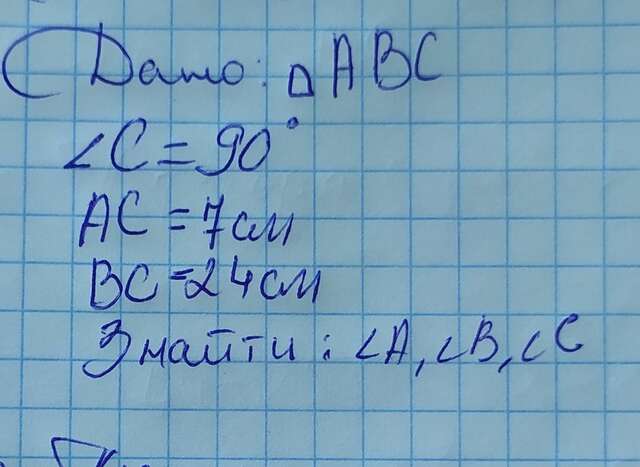 Дано: △ABC
∠C = 90°
AC = 7см
BC = 24см
Знайти: ∠A, ∠B, ∠C